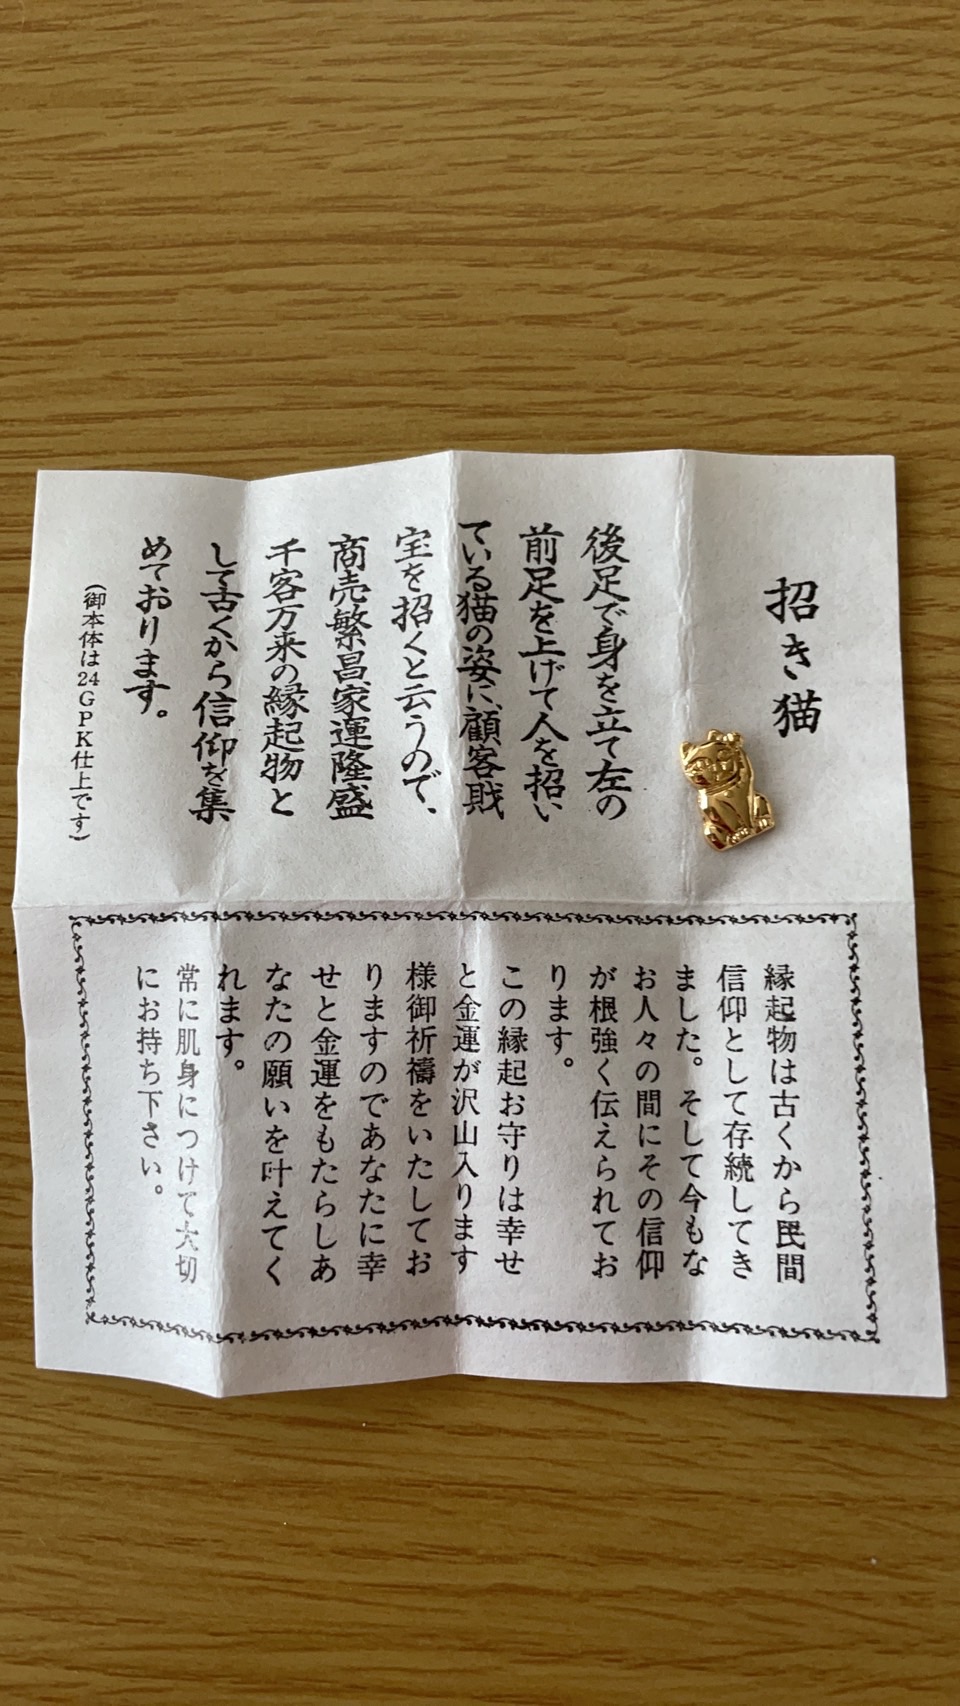 招き猫
後足で身を立て左の
前足を上げて人を招い
ている猫の姿に、顧客財
宝を招くと云うので、
商売繁昌、家運隆盛
千客万来の縁起物と
して古くから信仰を集
めております。
(御本体は24GPK仕上です)
縁起物は古くから民間
信仰として存続してき
ました。そして今もな
お人々の間にその信仰
が根強く伝えられてお
ります。
この縁起お守りは幸せ
と金運が沢山入ります
様御祈禱をいたしてお
りますのであなたに幸
せと金運をもたらしあ
なたの願いを叶えてく
れます。
常に肌身につけて大切
にお持ち下さい。